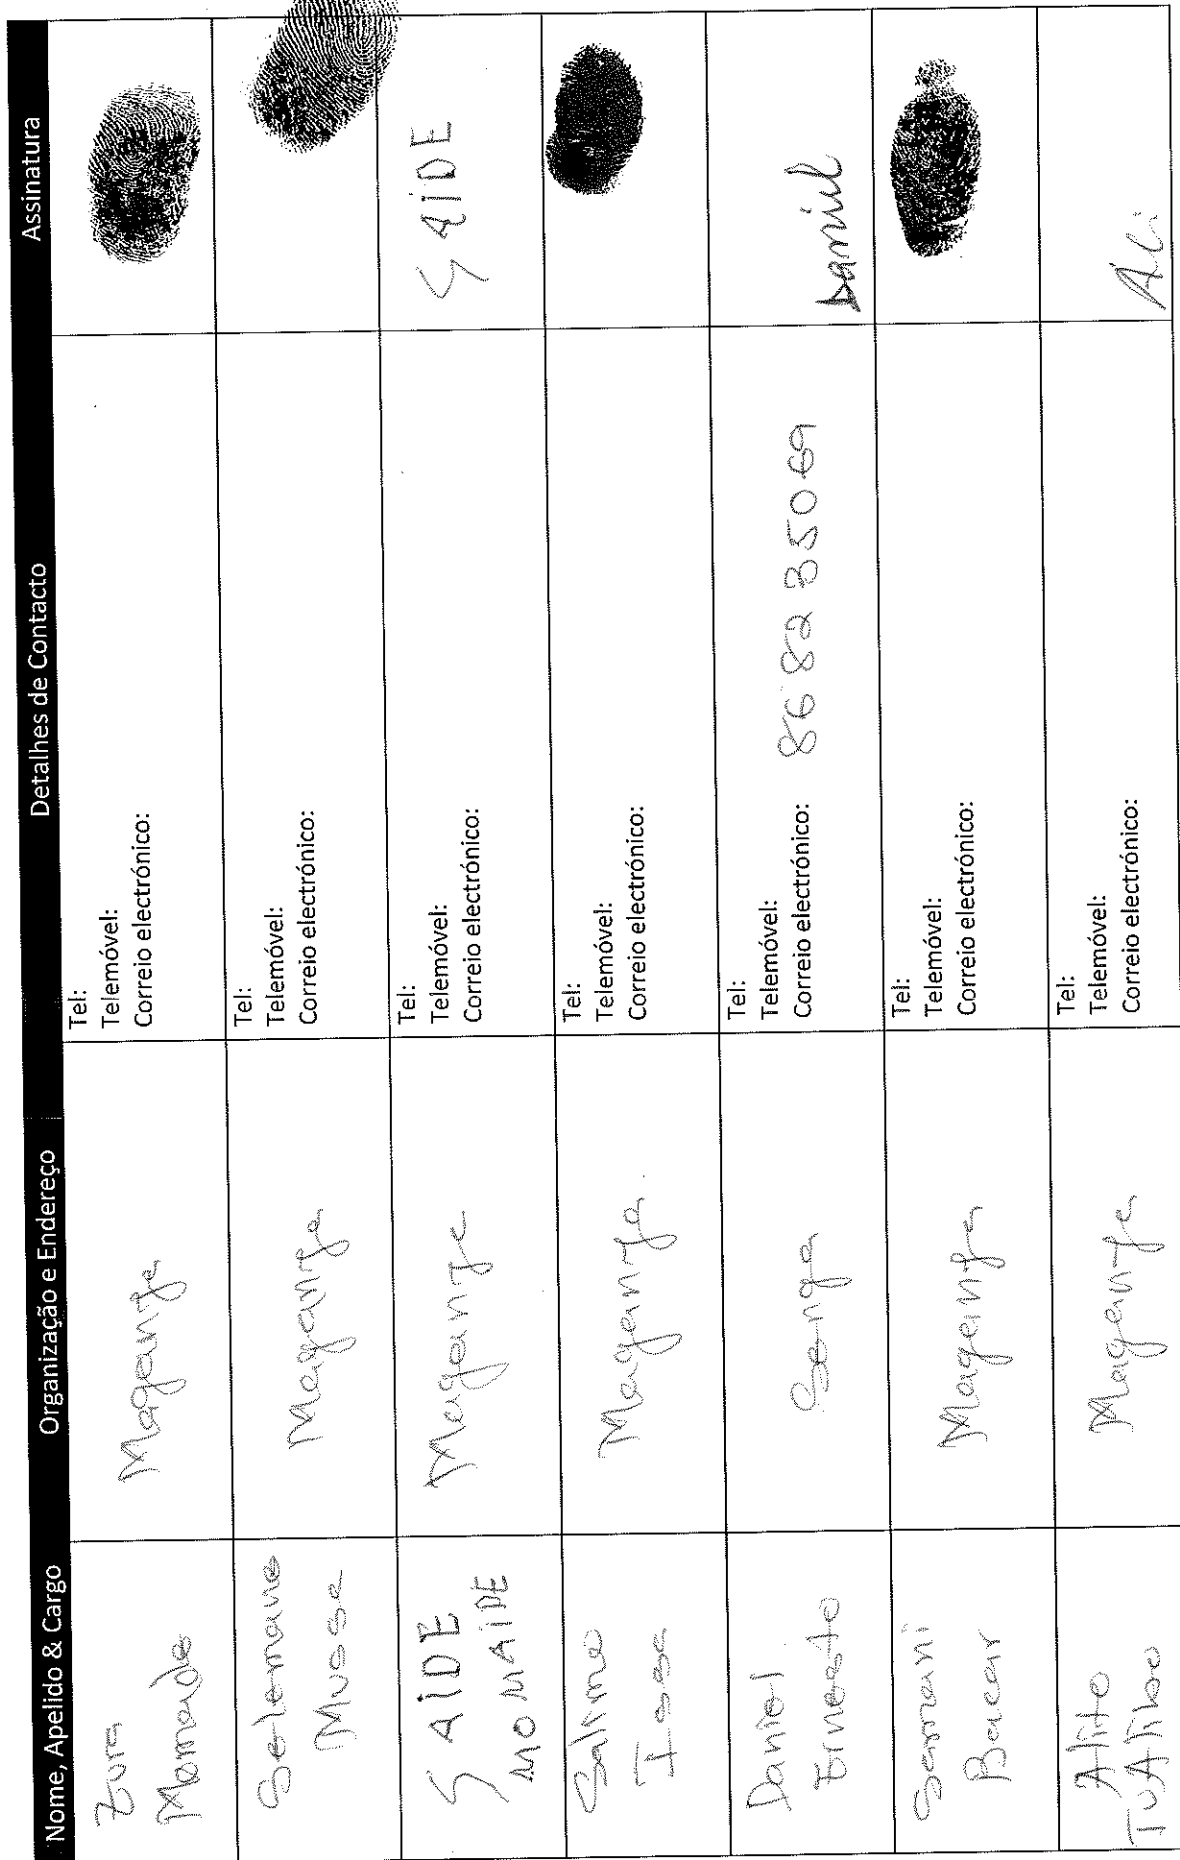 Nome, Apelido & Cargo Organização e Endereço Detalhes de Contacto Assinatura
Zura
Momade
Maganja
Tel:
Telemóvel:
Correio electrónico:
Selemane
Mussa
Maganja
Tel:
Telemóvel:
Correio electrónico:
SAIDE
MOMAIDE
Maganja
Tel:
Telemóvel:
Correio electrónico:
SAIDE
Salimo
Issa
Maganja.
Tel:
Telemóvel:
Correio electrónico:
Daniel
Ernesto
Senga
Tel:
Telemóvel:
Correio electrónico: 868235069
Daniel
Samani
Bacar
Maganja
Tel:
Telemóvel:
Correio electrónico:
Alito
Maganja
Tel:
Telemóvel:
Correio electrónico:
Ali